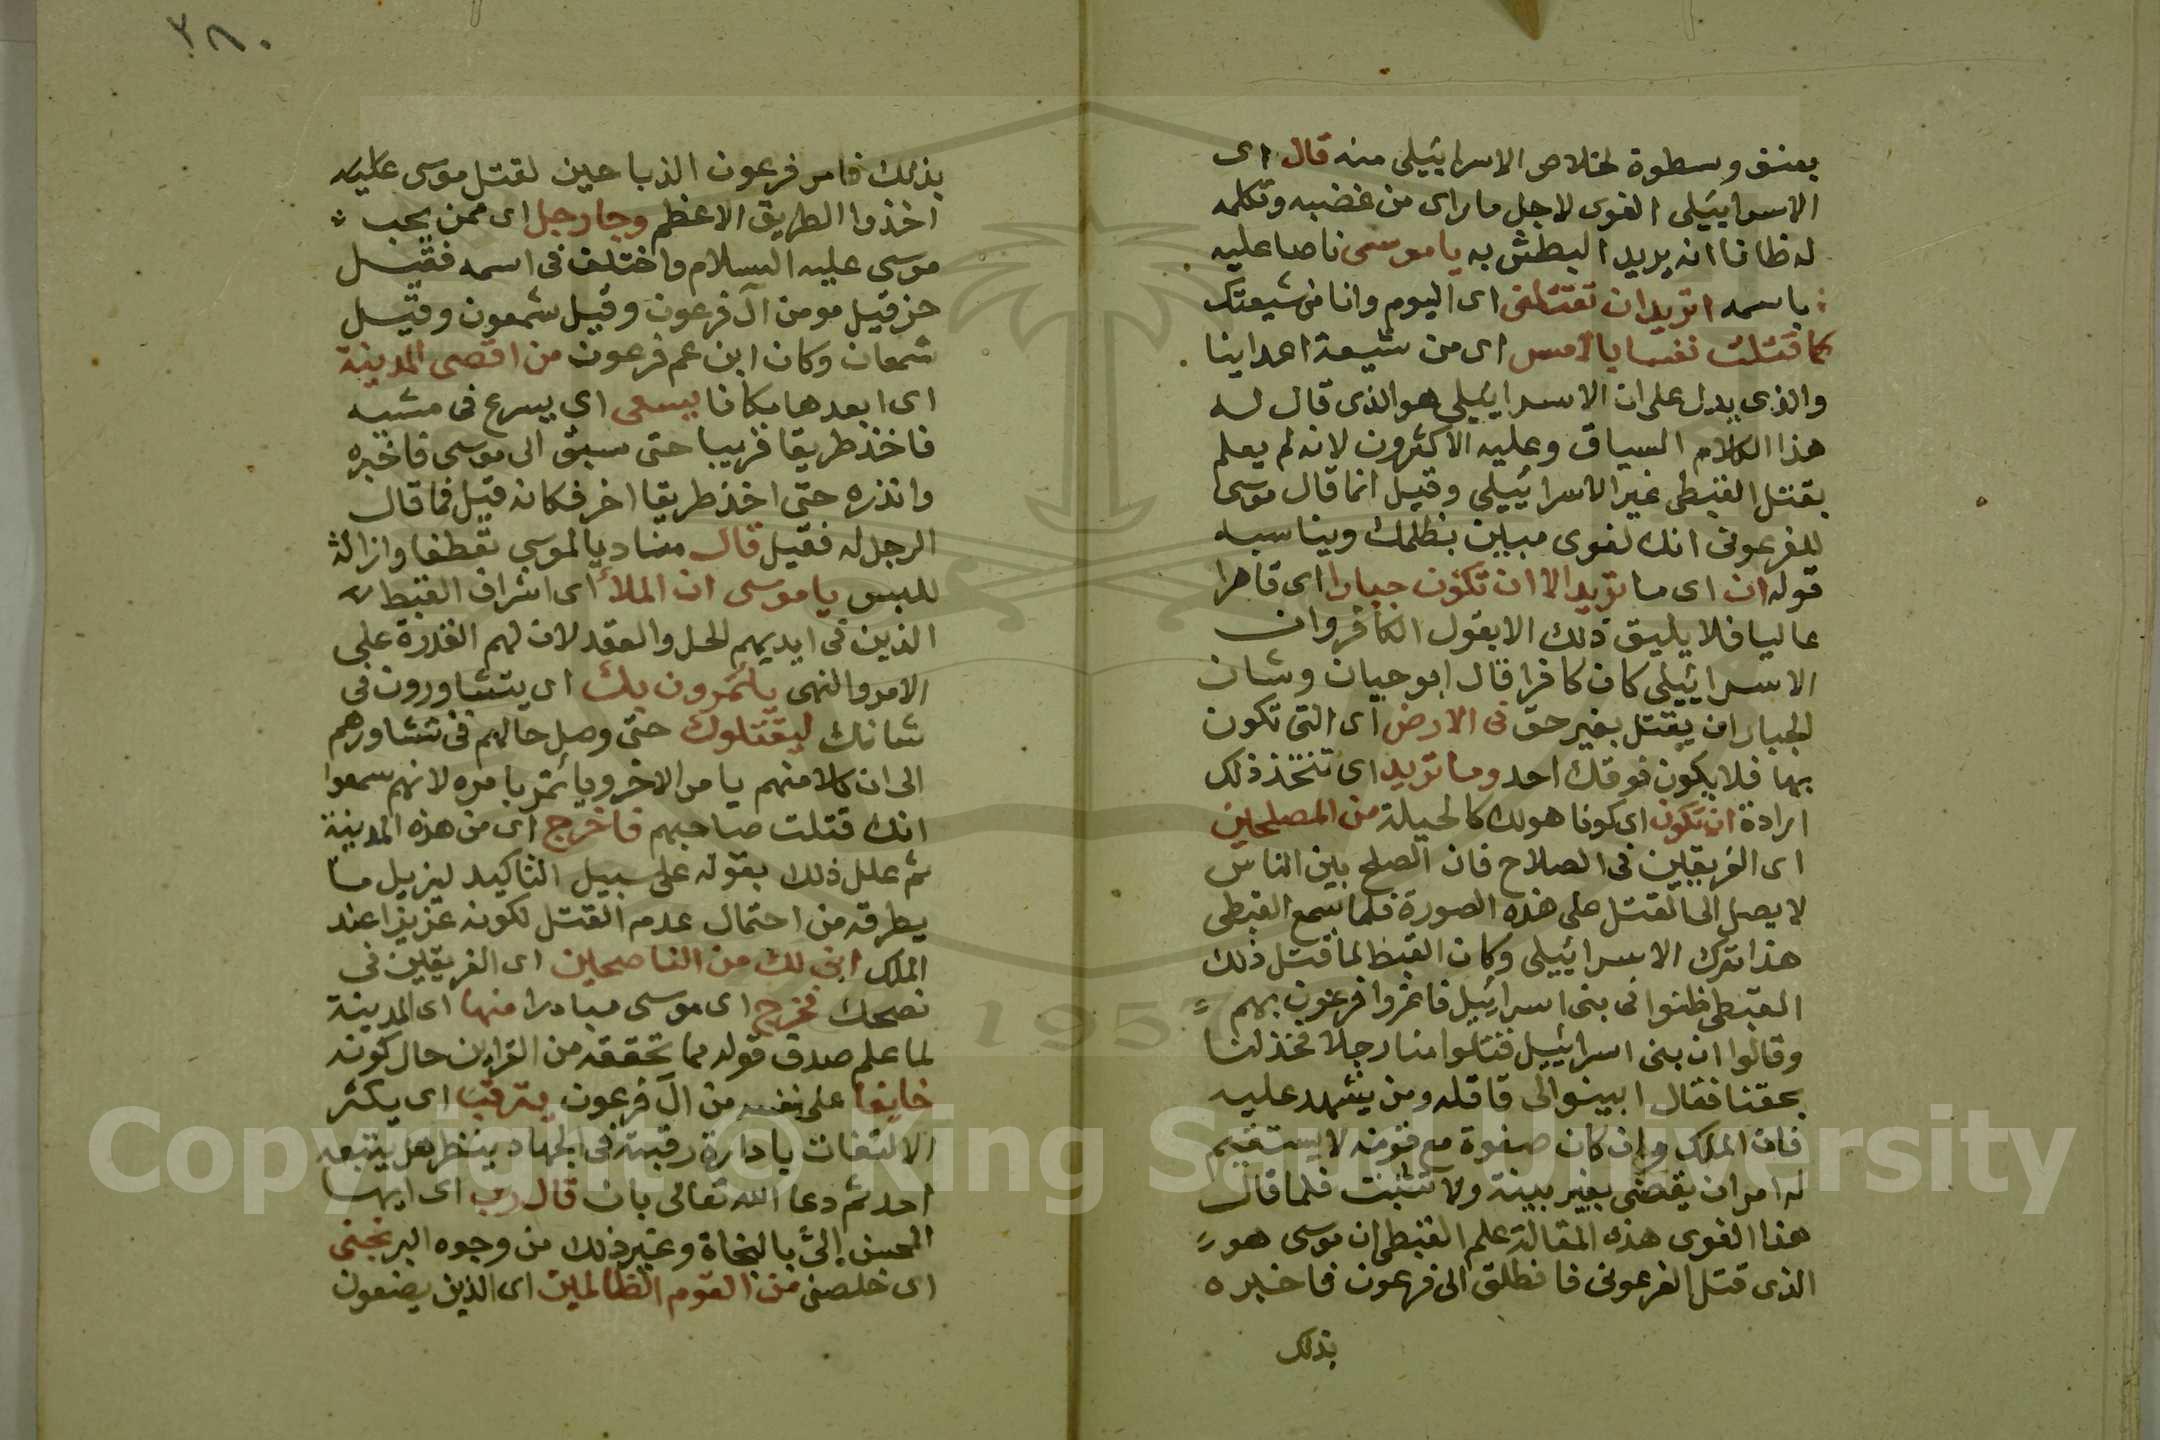 بعنف وسطوة لخلاص الاسرائيلى منه قال اى
الاسراييلى الغوى لاجل ماراى من غضبه وتكلمه
له ظانا انه يريد البطش به ياموسى ناصا عليه
باسمه اتريد ان تقتلنى اى اليوم وانا من شيعتك
كما قتلت نفسا بالامس اى من شيعة اعداينا
والذى يدل على ان الاسرايلى هو الذى قال له
هذا الكلام السياق وعليه الاكثرون لانه لم يعلم
بقتل القبطى غير الاسرائيلى وقيل انما قال موسى
للفرعونى انك لغوى مبين بظلمك ويناسبه
قوله ان اى ما تريد الا ان تكون جبارا اى قاهرا
عاليا فلا يليق ذلك الا بقول الكافر وان
الاسرائيلى كان كافرا قال ابو حيان وشان
الجبار ان يقتل بغير حق فى الارض اى التى تكون
بها فلا يكون فوقك احد وما تريد اى تتخذ ذلك
ارادة ان تكون اى كونا هو لك كالجبلة من المصلحين
اى الغريقين فى الصلاح فان الصلح بين الناس
لا يصل الى القتل على هذه الصورة فلما سمع القبطى
هذا ترك الاسرائيلى وكان القبط لما قتل ذلك
القبطى ظنوا فى بنى اسرائيل فاغروا فرعون بهم
وقالوا ان بنى اسرائيل قتلوا منا رجلا فخذ لنا
بحقنا فقال ابينوالى قاتله ومن يشهد عليه
فان الملك وان كان صفوة مع قومه لا يستقيم
له امر ان يقضى بغير بينة ولا تثبت فلما قال
هذا الغوى هذه المقالة علم القبطى ان موسى هو
الذى قتل الفرعونى فانطلق الى فرعون فاخبره
بذلك
٢٨٠
بذلك فامر فرعون الذباحين لقتل موسى عليه
اخذوا الطريق الاعظم وجا رجل اى ممن يحب
موسى عليه السلام واختلف فى اسمه فقيل
حزقيل مومن آل فرعون وقيل شمعون وقيل
شمعان وكان ابن عم فرعون من اقصى المدينة
اى ابعدها مكانا يسعى اى يسرع فى مشيه
فاخذ طريقا قريبا حتى سبق الى موسى فاخبره
وانذره حتى اخذ طريقا اخر فكانه قيل فما قال
الرجل له فقيل قال مناديا لموسى تعطفا وازالة
للبس ياموسى ان الملأ اى اشراف القبط
الذين فى ايديهم الحل والعقد لان لهم القدرة على
الامر والنهى ياتمرون بك اى يتشاورون فى
شانك ليقتلوك حتى وصل حالهم فى تشاورهم
الى ان كلا منهم يامر الاخر ويأتمر بامره لانهم سمعوا
انك قتلت صاحبهم فاخرج اى من هذه المدينة
ثم علل ذلك بقوله على سبيل التاكيد ليزيل ما
يطرقه من احتمال عدم القتل لكونه عزيزا عند
الملك انى لك من الناصحين اى الغريقين فى
نصحك فخرج اى موسى مبادرا منها اى المدينة
لما علم صدق قوله مما تحققه من القراين حال كونه
خايفا على نفسه من آل فرعون يترقب اى يكثر
الالتفات بادارة رقبته فى الجهات ينظر هل يتبعه
احد ثم دعا الله تعالى بان قال رب اى ايها
المحسن إلىّ بالنجاة وغير ذلك من وجوه البر نجنى
اى خلصنى من القوم الظالمين اى الذين يضعون
Copyright © King Saud University
1957